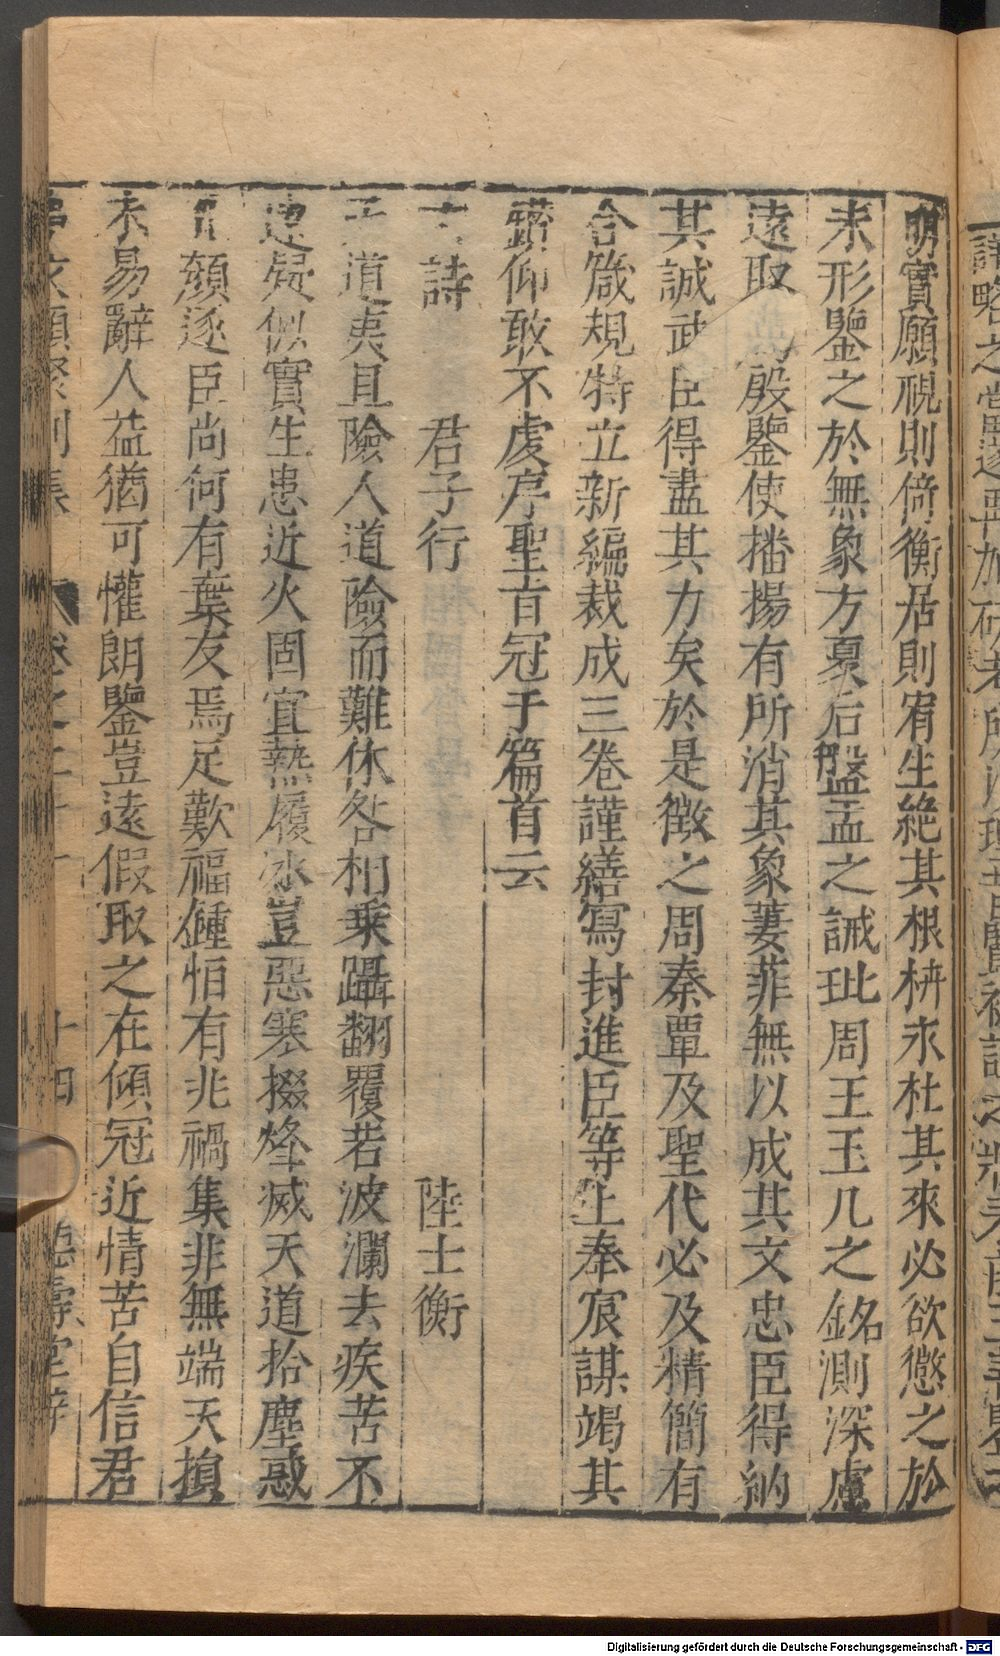 明實願視則倚衡居則宥生絶其根枿永杜其來必欲懲之於
未形鑒之於無象方夏后盤盂之誡玭周王玉几之銘測深慮
遠取殷鑒使播揚有所消其象萋菲無以成其文忠臣得納
其誠武臣得盡其力矣於是徵之周秦覃及聖代必及精簡有
合箴規特立新編裁成三卷謹繕寫封進臣等上奉宸謀竭其
鑚仰敢不虔序聖旨冠于篇首云
古詩 君子行 陸士衡
天道夷且險人道險而難休咎相乗躡翻覆若波瀾去疾苦不
遠疑似實生患近火固宜熱履冰豈惡寒掇烽滅天道拾塵惑
孔顔逐臣尚何有棄友焉足歎福鍾恒有兆禍集非無端天損
未易辭人益猶可懽朗鑒豈遠假取之在傾冠近情苦自信君
卷之二十 十四 德壽堂梓
Digitalisierung gefördert durch die Deutsche Forschungsgemeinschaft - DFG